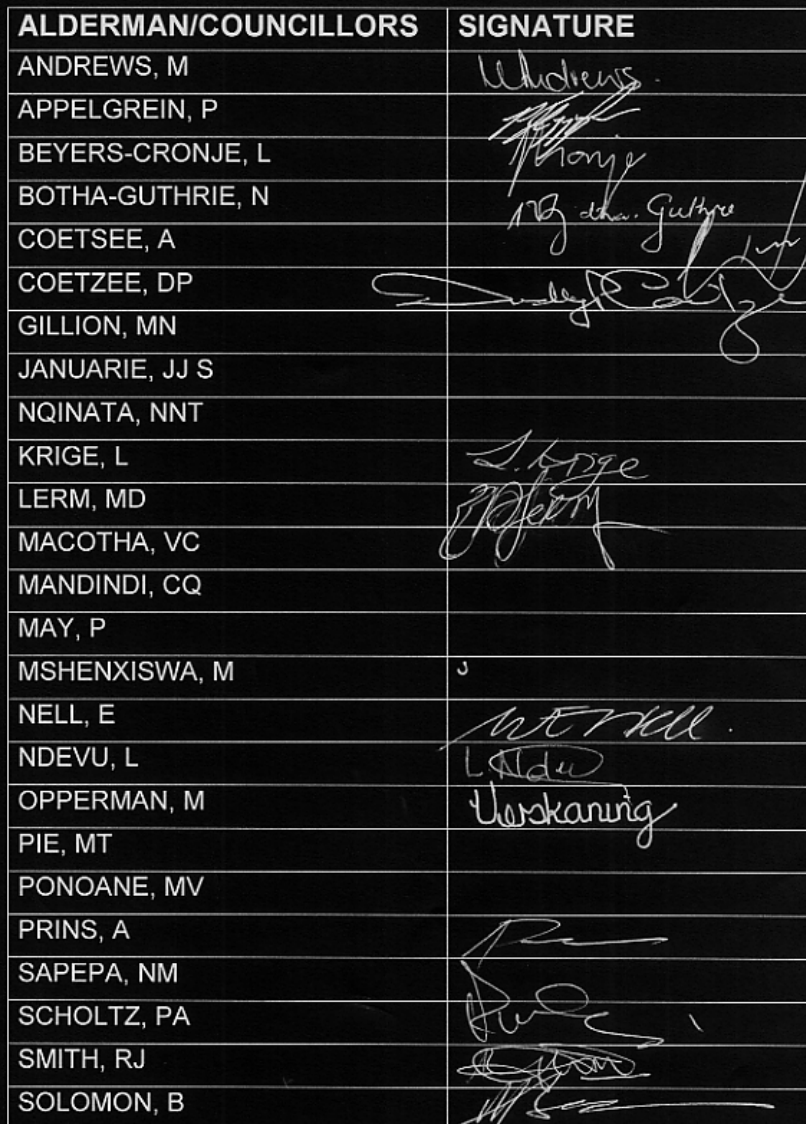 ALDERMAN/COUNCILLORS SIGNATURE
ANDREWS, M
APPELGREIN, P
BEYERS-CRONJE, L
BOTHA-GUTHRIE, N Guthrie
COETSEE, A
COETZEE, DP
GILLION, MN
JANUARIE, JJ S
NQINATA, NNT
KRIGE, L L. Krige
LERM, MD
MACOTHA, VC
MANDINDI, CQ
MAY, P
MSHENXISWA, M
NELL, E
NDEVU, L
OPPERMAN, M Verskoning
PIE, MT
PONOANE, MV
PRINS, A
SAPEPA, NM
SCHOLTZ, PA
SMITH, RJ
SOLOMON, B